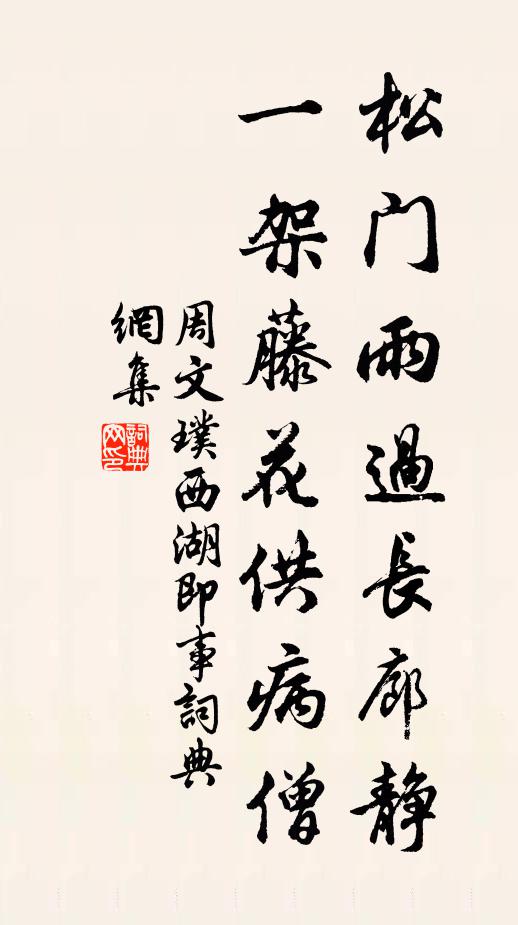 松门雨過長廊静
一架藤花供病僧
周文璞西湖即事詞典
網集
詞典网印